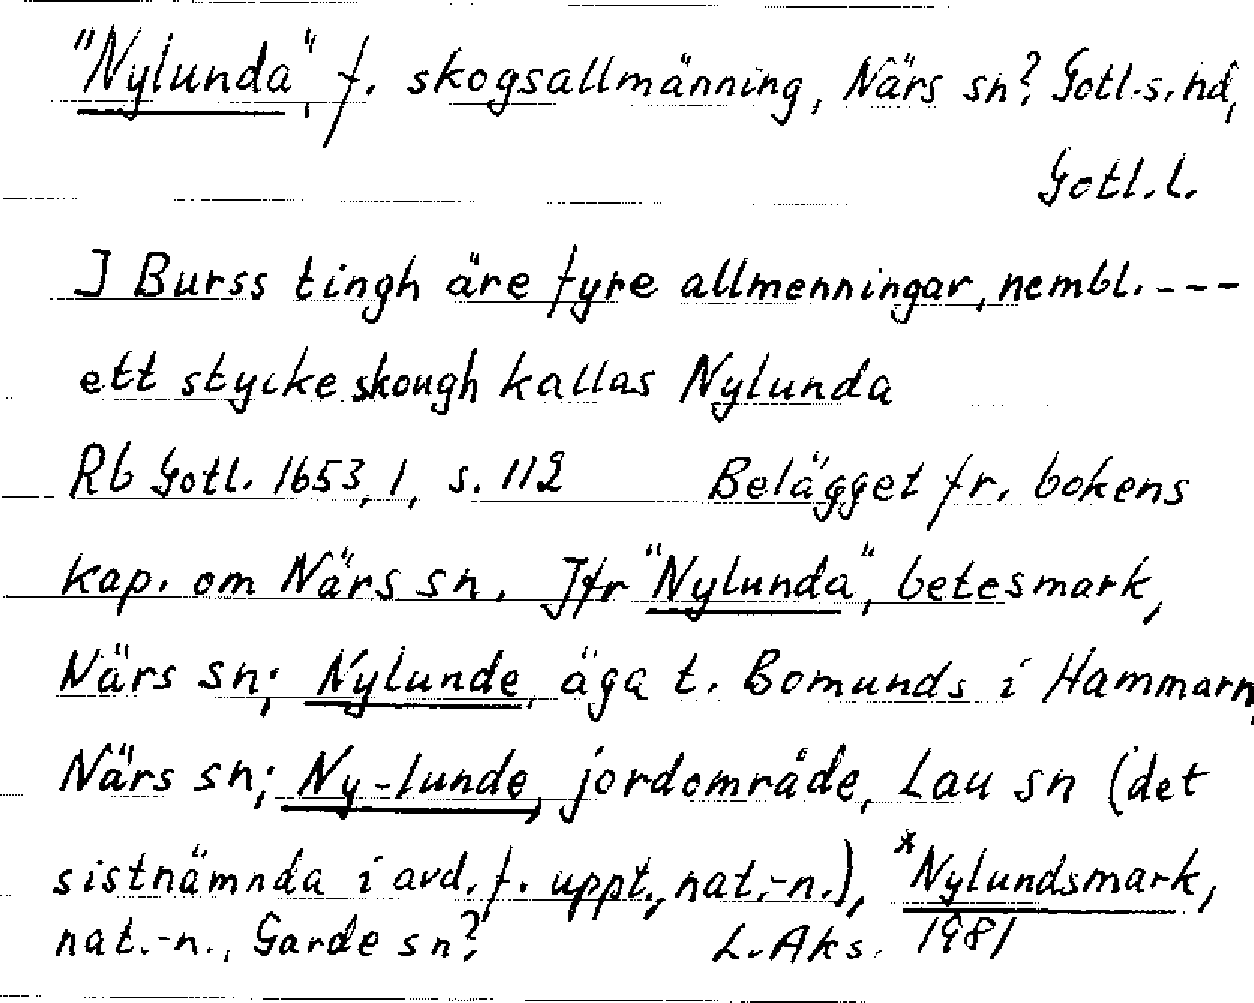 "Nylunda", f. skogsallmänning, Närs sn? Gotl.s.hd,
Gotl.l.
I Burss tingh äre fyre allmenningar, nembl. ---
ett stycke skough kallas Nylunda
Rb Gotl. 1653, 1, s. 112 Belägget fr. bokens
kap. om Närs sn. Jfr "Nylunda", betesmark,
Närs sn; Nylunde, äga t. Bomunds i Hammarn,
Närs sn; Ny-lunde, jordområde, Lau sn (det
sistnämnda i avd. f. uppt., nat.-n.), *Nylundsmark,
nat.-n., Garde sn? L. Aks. 1981